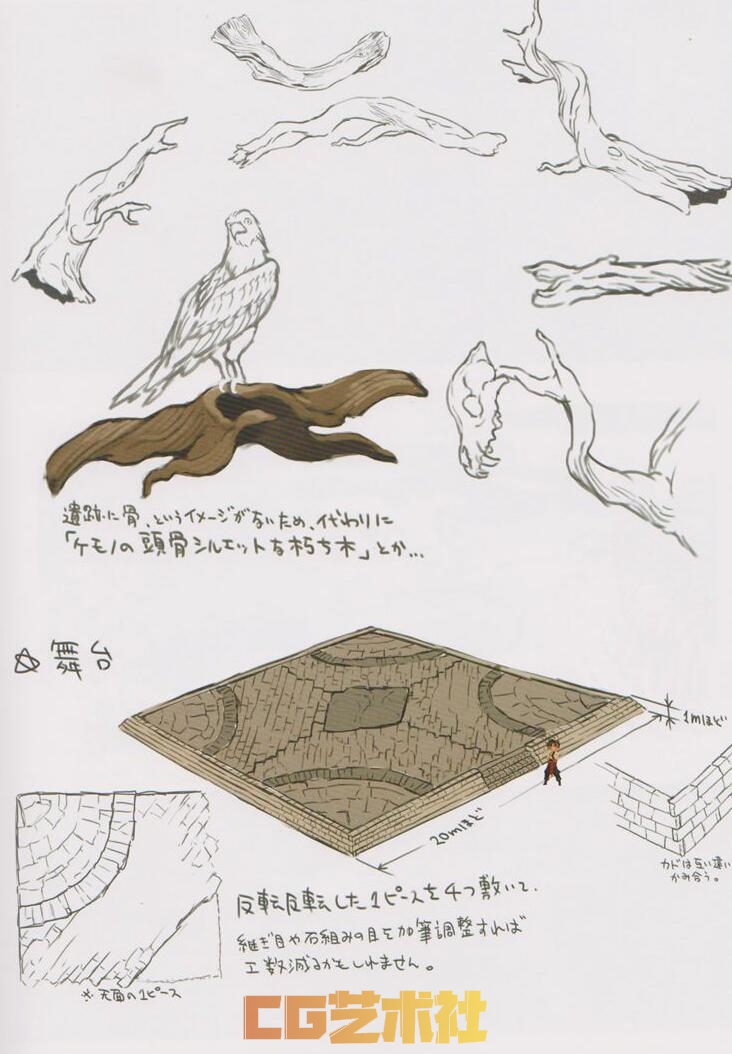 遺跡に骨、というイメージがないため、代わりに
「ケモノの頭骨シルエットな朽ち木」とか…
☆舞台
1mほど
20mほど
カドは互い違い
かみ合う。
反転反転した1ピースを4つ敷いて、
継ぎ目や石組みの目を加筆調整すれば
工数減るかもしれません。
※天面の1ピース
CG艺术社